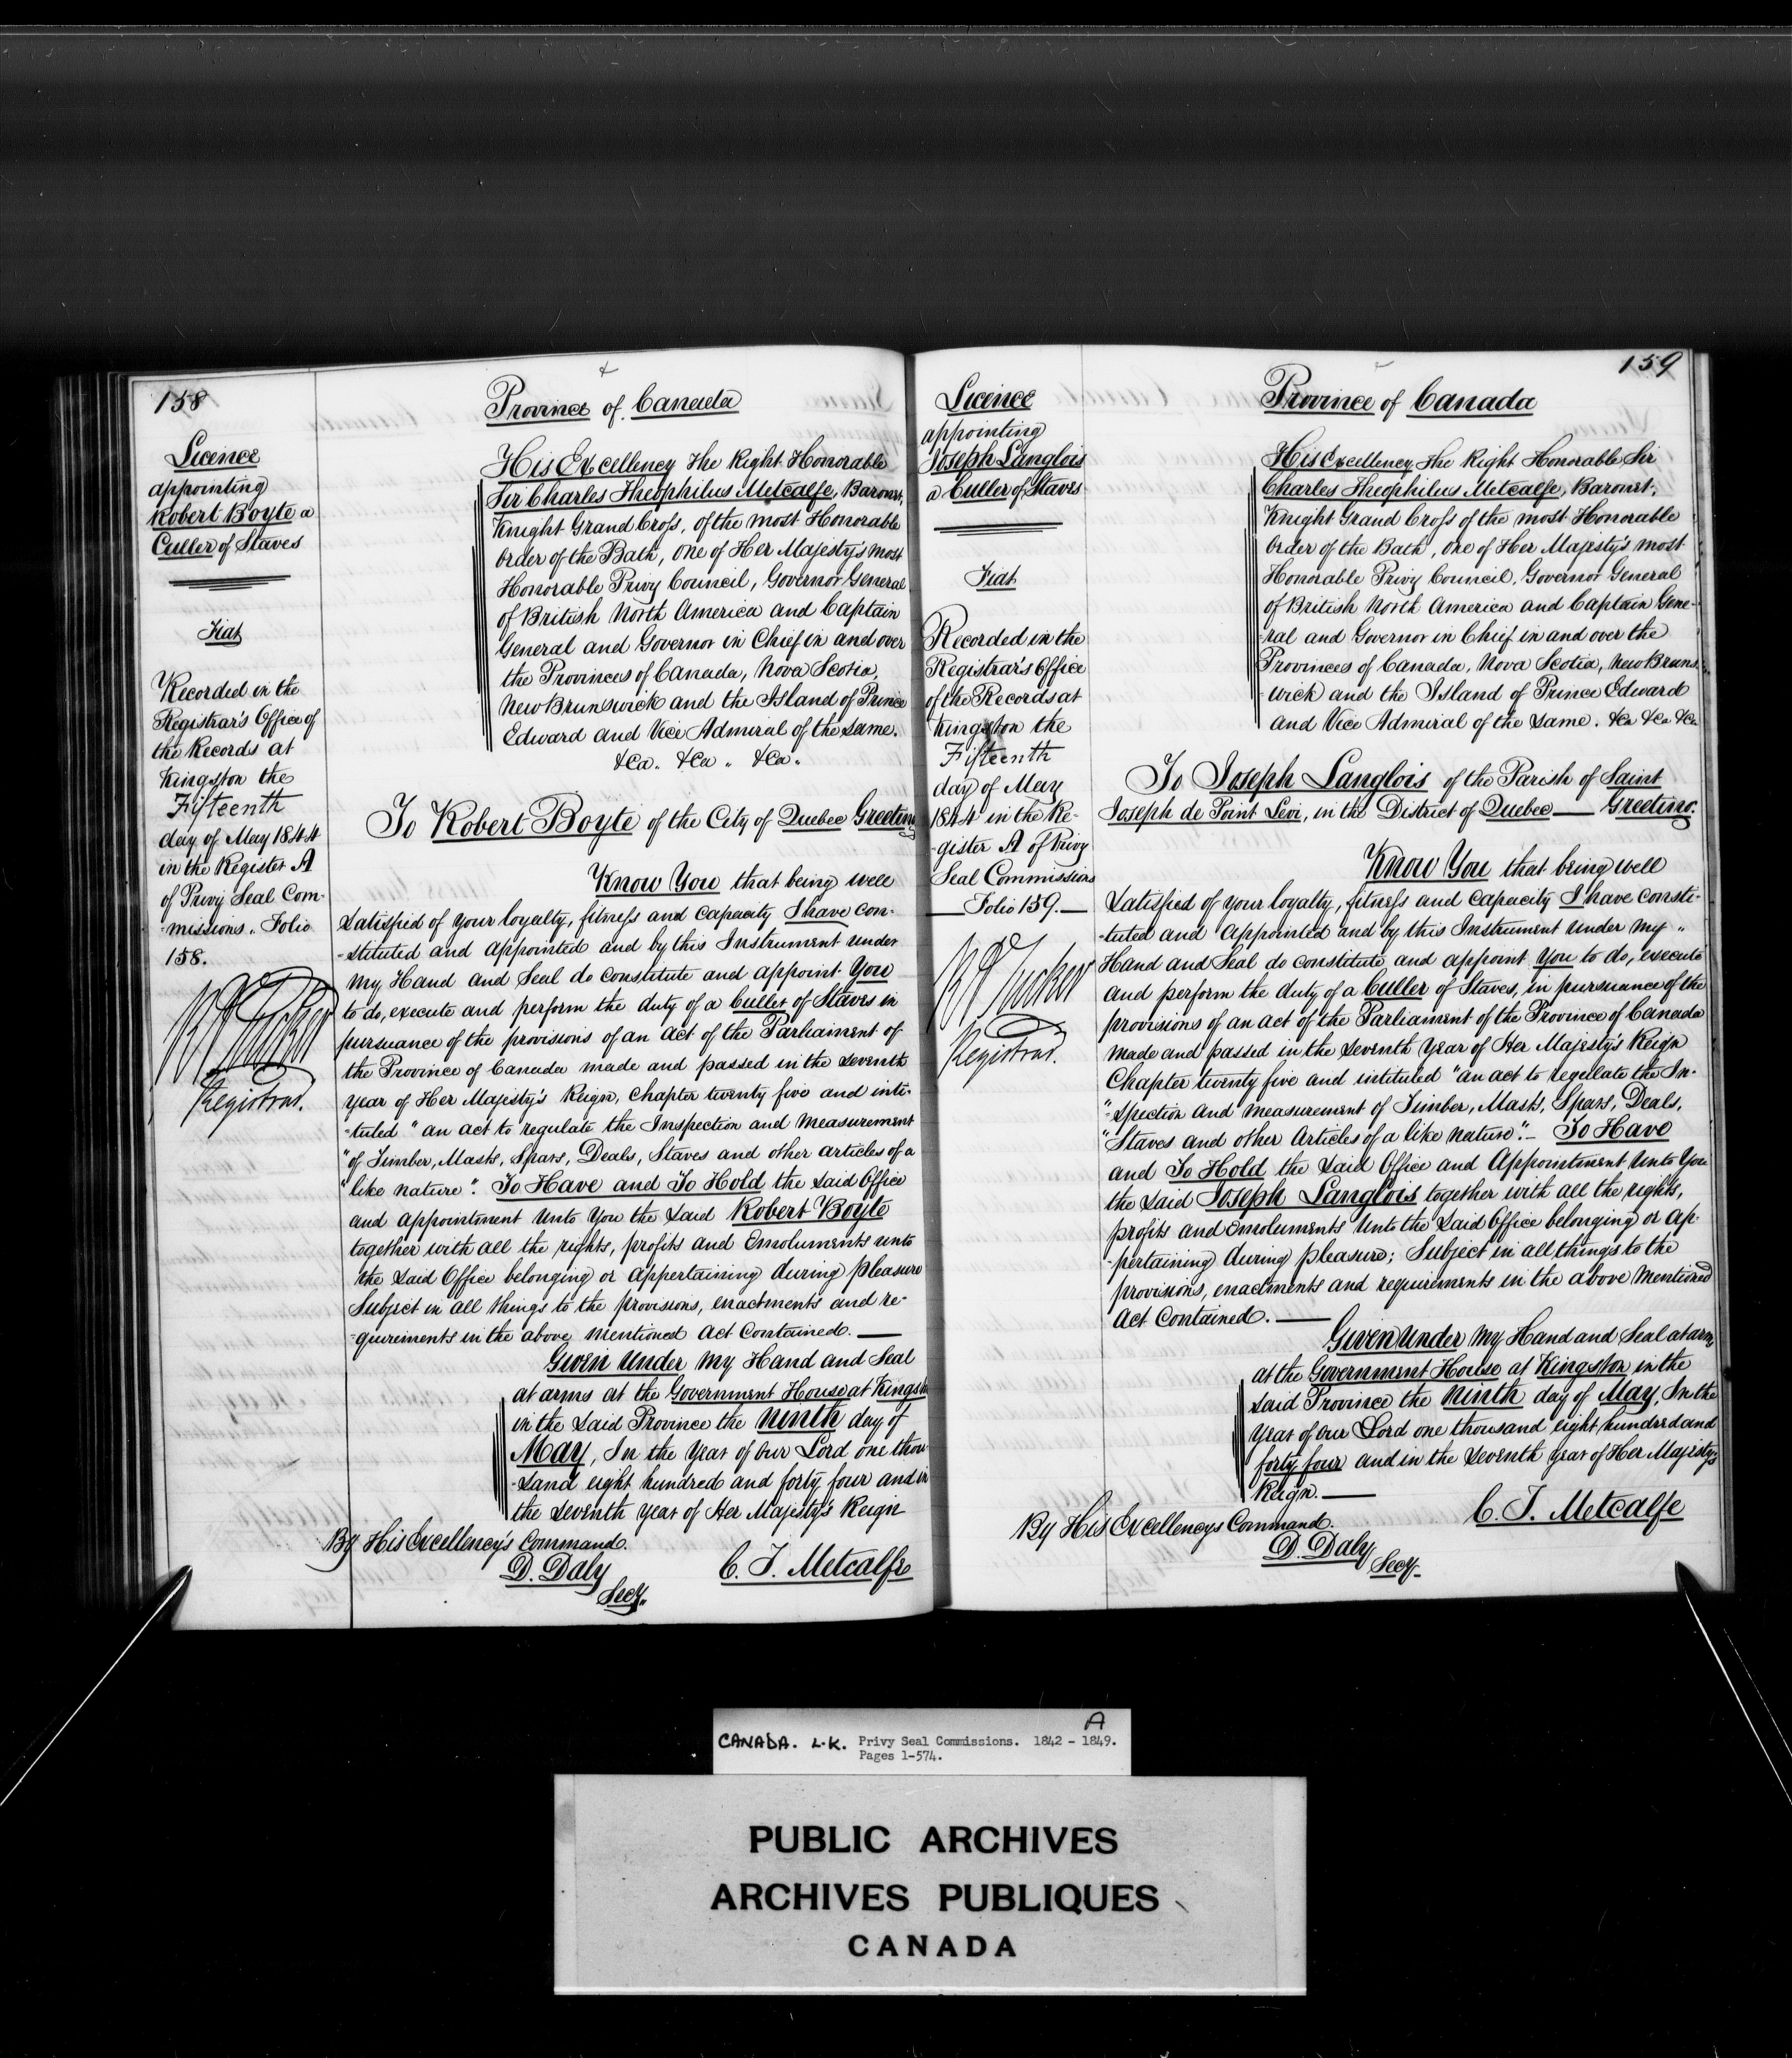 158
Licence
appointing
Robert Boyte a
Culler of Staves
Fiat
Recorded in the
Registrar's Office of
the Records at
Kingston the
Fifteenth
day of May 1844
in the Register A
of Privy Seal Com-
-missions. Folio
158.
R A Tucker
Registrar.
Province of Canada
His Excellency The Right Honorable
Sir Charles Theophilus Metcalfe, Baronet,
Knight Grand Cross, of the most Honorable
Order of the Bath, one of Her Majesty's most
Honorable Privy Council, Governor General
of British North America and Captain
General and Governor in Chief in and over
the Provinces of Canada, Nova Scotia,
New Brunswick and the Island of Prince
Edward and Vice Admiral of the same.
&ca. &ca. &ca.
To Robert Boyte of the City of Quebec Greeting
Know You that being well
satisfied of your loyalty, fitness and capacity I have con-
-stituted and appointed and by this Instrument under
my Hand and Seal do constitute and appoint You
to do, execute and perform the duty of a Culler of Staves in
pursuance of the provisions of an act of the Parliament of
the Province of Canada made and passed in the seventh
year of Her Majesty's Reign, Chapter twenty five and inti-
-tuled "an act to regulate the Inspection and measurement
"of Timber, Masts, Spars, Deals, Staves and other articles of a
"like nature". To Have and To Hold the said Office
and appointment unto You the said Robert Boyte
together with all the rights, profits and Emoluments unto
the said Office belonging or appertaining during pleasure
Subject in all things to the provisions, enactments and re-
-quirements in the above mentioned Act Contained.
Given under my Hand and Seal
at arms at the Government House at Kingston
in the said Province the Ninth day of
May, In the Year of our Lord one thou-
-sand eight hundred and forty four and in
the seventh year of Her Majesty's Reign
By His Excellency's Command.
D. Daly
Secy.
C. T. Metcalfe
159
Licence
appointing
Joseph Langlois
a Culler of Staves
Fiat
Recorded in the
Registrar's Office
of the Records at
Kingston the
Fifteenth
day of May
1844 in the Re-
-gister A of Privy
Seal Commissions
Folio 159.
R A Tucker
Registrar.
Province of Canada
His Excellency The Right Honorable Sir
Charles Theophilus Metcalfe, Baronet,
Knight Grand Cross of the most Honorable
Order of the Bath, one of Her Majesty's most
Honorable Privy Council, Governor General
of British North America and Captain Gene-
-ral and Governor in Chief in and over the
Provinces of Canada, Nova Scotia, New Bruns-
-wick and the Island of Prince Edward
and Vice Admiral of the same. &ca &ca &ca
To Joseph Langlois of the Parish of Saint
Joseph de Point Levi, in the District of Quebec Greeting.
Know You that being well
satisfied of your loyalty, fitness and capacity I have consti-
-tuted and appointed and by this Instrument under my
Hand and Seal do constitute and appoint You to do, execute
and perform the duty of a Culler of Staves, in pursuance of the
provisions of an act of the Parliament of the Province of Canada
made and passed in the seventh Year of Her Majesty's Reign
Chapter twenty five and intituled "an act to regulate the In-
"-spection and measurement of Timber, Masts, Spars, Deals,
"Staves and other Articles of a like nature". To Have
and To Hold the said Office and Appointment unto You
the said Joseph Langlois together with all the rights,
profits and emoluments unto the said Office belonging or ap-
-pertaining during pleasure; Subject in all things to the
provisions, enactments and requirements in the above mentioned
Act Contained.
Given under my Hand and Seal at arms
at the Government House at Kingston in the
said Province the Ninth day of May, In the
year of our Lord one thousand eight hundred and
forty four and in the seventh year of Her Majesty's
Reign.
By His Excellencys Command.
D. Daly
Secy.
C. T. Metcalfe
A
CANADA. L.K. Privy Seal Commissions. 1842 - 1849.
Pages 1-574.
PUBLIC ARCHIVES
ARCHIVES PUBLIQUES
CANADA